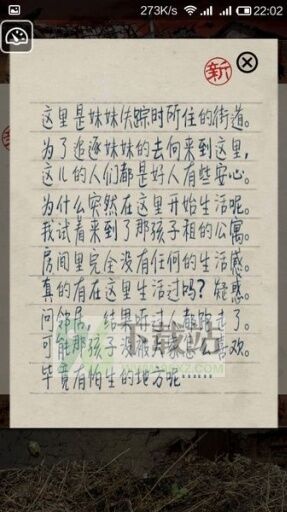 273K/s 22:02
新
这里是妹妹失踪时所住的街道。
为了追逐妹妹的去向来到这里,
这儿的人们都是好人有些安心。
为什么突然在这里开始生活呢。
我试着来到了那孩子租的公寓。
房间里完全没有任何的生活感。
真的有在这里生活过吗?疑惑。
问邻居,结果
了。
可能那孩子没
喜欢。
毕竟有怕生的地方呢……
下载站